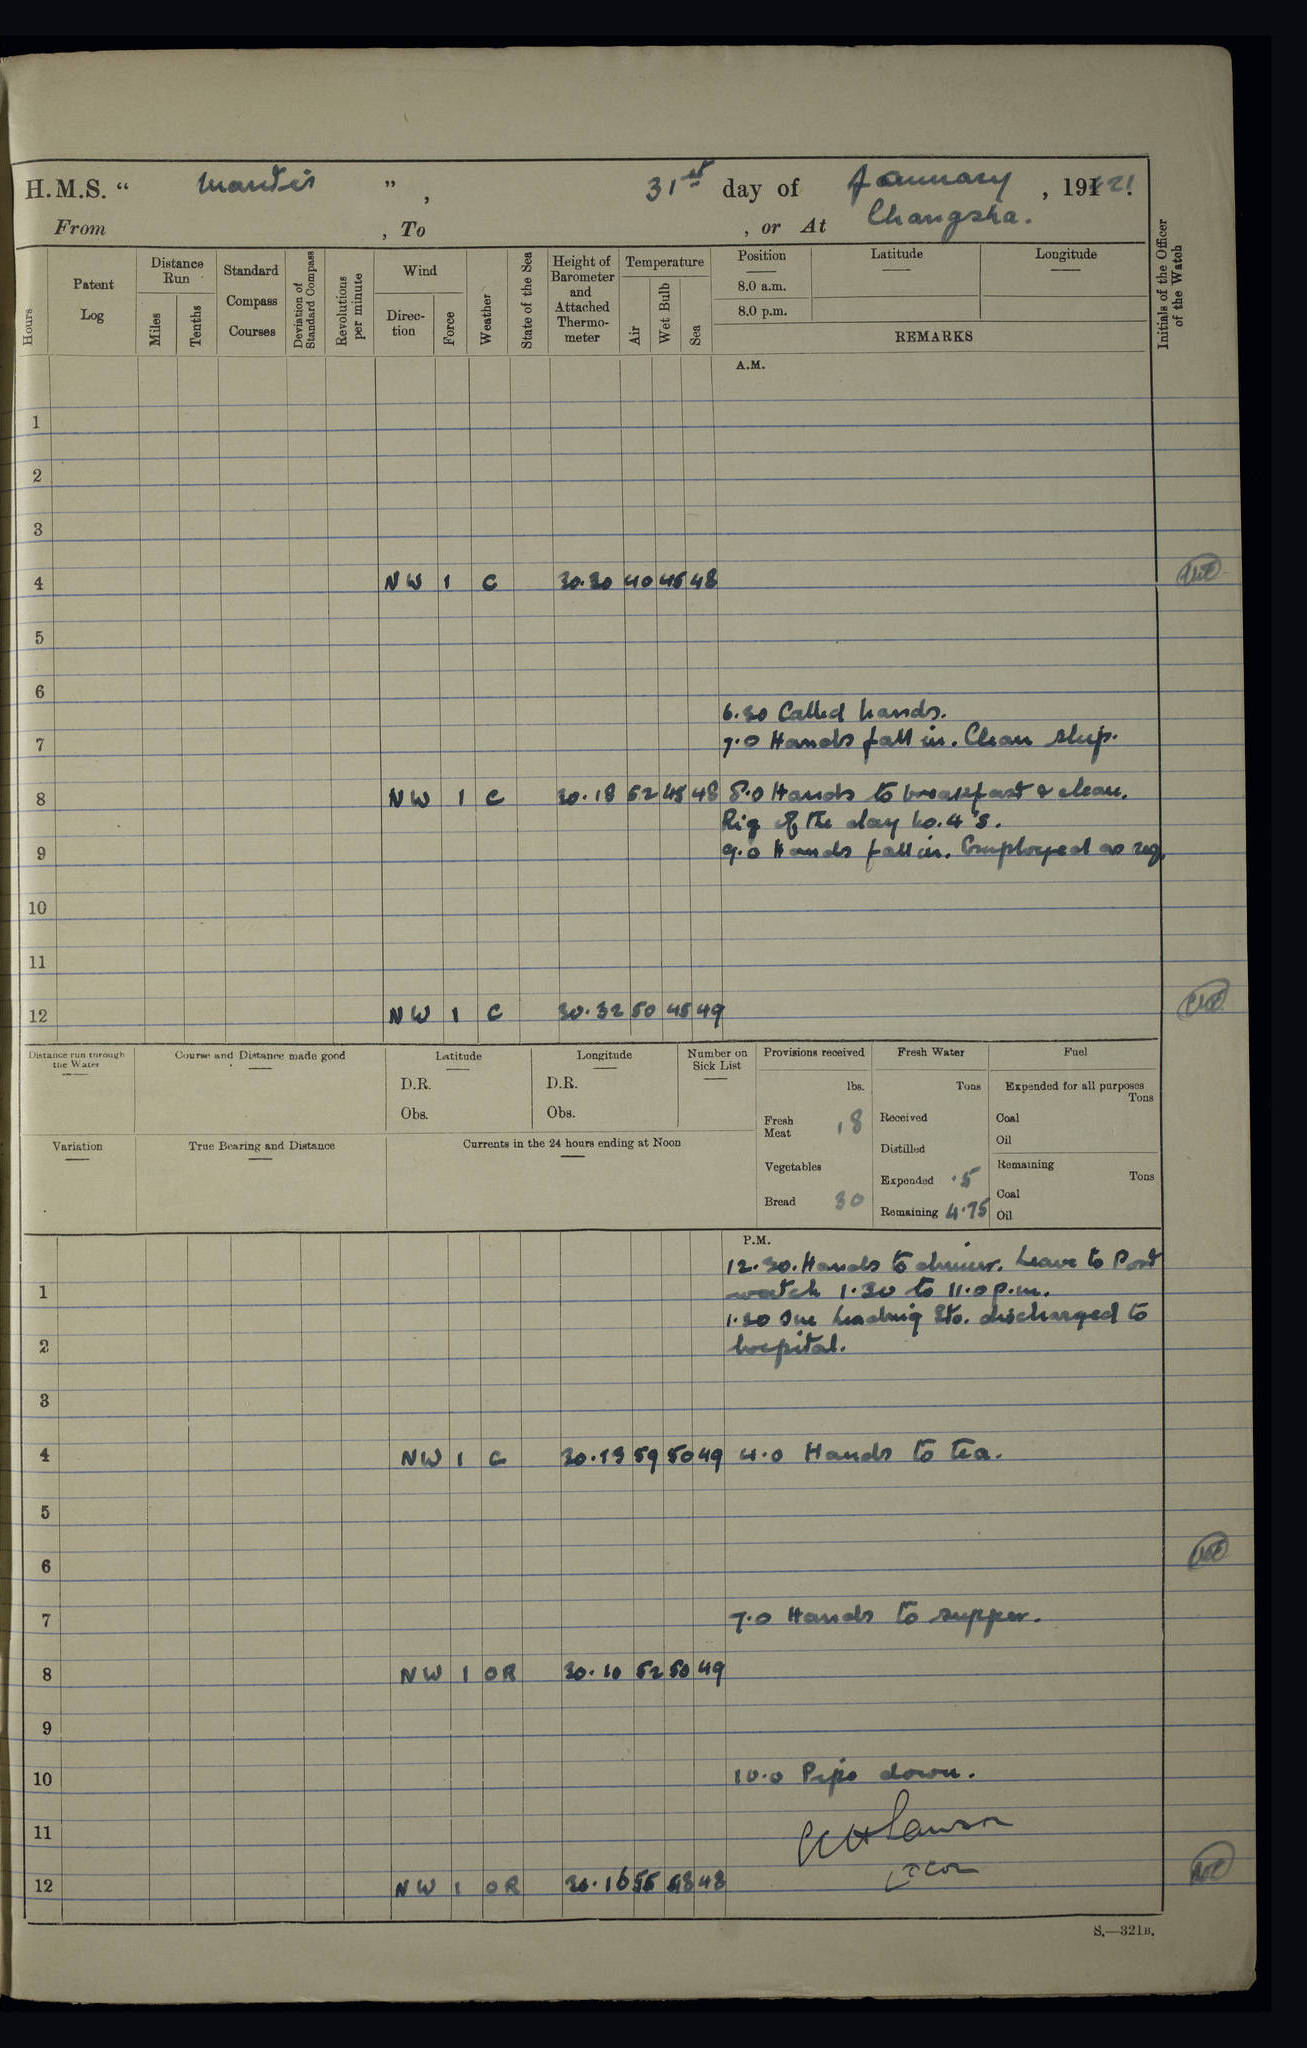 H.M.S. “ Mantis ”, 31st day of January, 1921.
From , To , or At Changsha.
Hours
Patent Log
Distance Run
Miles
Tenths
Standard Compass Courses
Deviation of Standard Compass
Revolutions per minute
Wind
Direc-tion
Force
Weather
State of the Sea
Height of Barometer and Attached Thermo-meter
Temperature
Air
Wet Bulb
Sea
Position
8.0 a.m.
8.0 p.m.
Latitude
Longitude
REMARKS
Initials of the Officer of the Watch
A.M.
1
2
3
4 NW 1 C 30.30 40 45 48
5
6
6.30 Called hands.
7 7.0 Hands fall in. Clean ship.
8 NW 1 C 30.18 52 45 48 8.0 Hands to breakfast & clean.
Rig of the day No. 4's.
9 9.0 Hands fall in. Employed as req.
10
11
12 NW 1 C 30.32 50 45 49
Distance run through the Water
Course and Distance made good
Latitude
D.R.
Obs.
Longitude
D.R.
Obs.
Number on Sick List
Provisions received
lbs.
Fresh Meat 18
Vegetables
Bread 30
Fresh Water
Tons
Received
Distilled
Expended .5
Remaining 4.75
Fuel
Expended for all purposes
Tons
Coal
Oil
Remaining
Tons
Coal
Oil
Variation
True Bearing and Distance
Currents in the 24 hours ending at Noon
P.M.
12.30. Hands to dinner. Leave to Port
1 watch 1.30 to 11.0 p.m.
1.30 One Leading Sto. discharged to
2 hospital.
3
4 NW 1 C 30.13 59 50 49 4.0 Hands to tea.
5
6
7 7.0 Hands to supper.
8 NW 1 OR 30.10 52 50 49
9
10 10.0 Pipe down.
11
12 NW 1 OR 30.16 55 48 48
S.—321B.